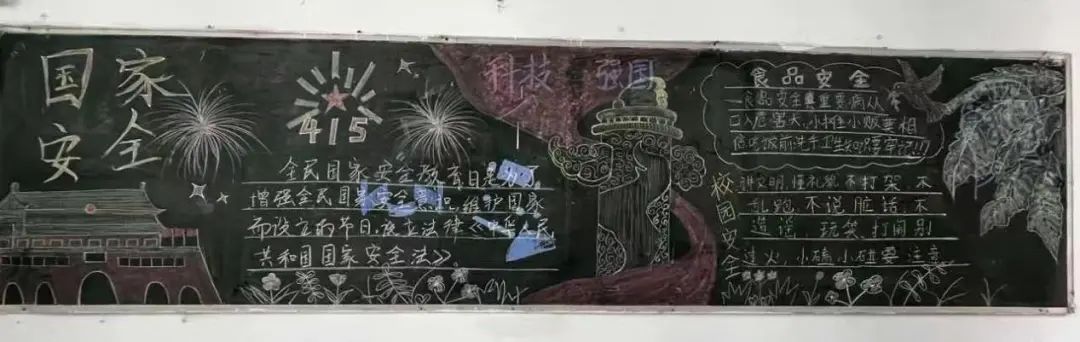 国家
安全
415
全民国家安全教育日是为了
增强全民国家安全意识,维护国家
而设立的节日,设立法律《中华人民
共和国国家安全法》。
科技 强国
食品安全
食品安全最重要病从
口入危害大,小摊小贩要相
信吃饭前洗手卫生知识要牢记!!
校园安全
讲文明,懂礼貌,不打架,不
乱跑,不说脏话,不
造谣 玩笑打闹别
过火,小磕小碰要注意